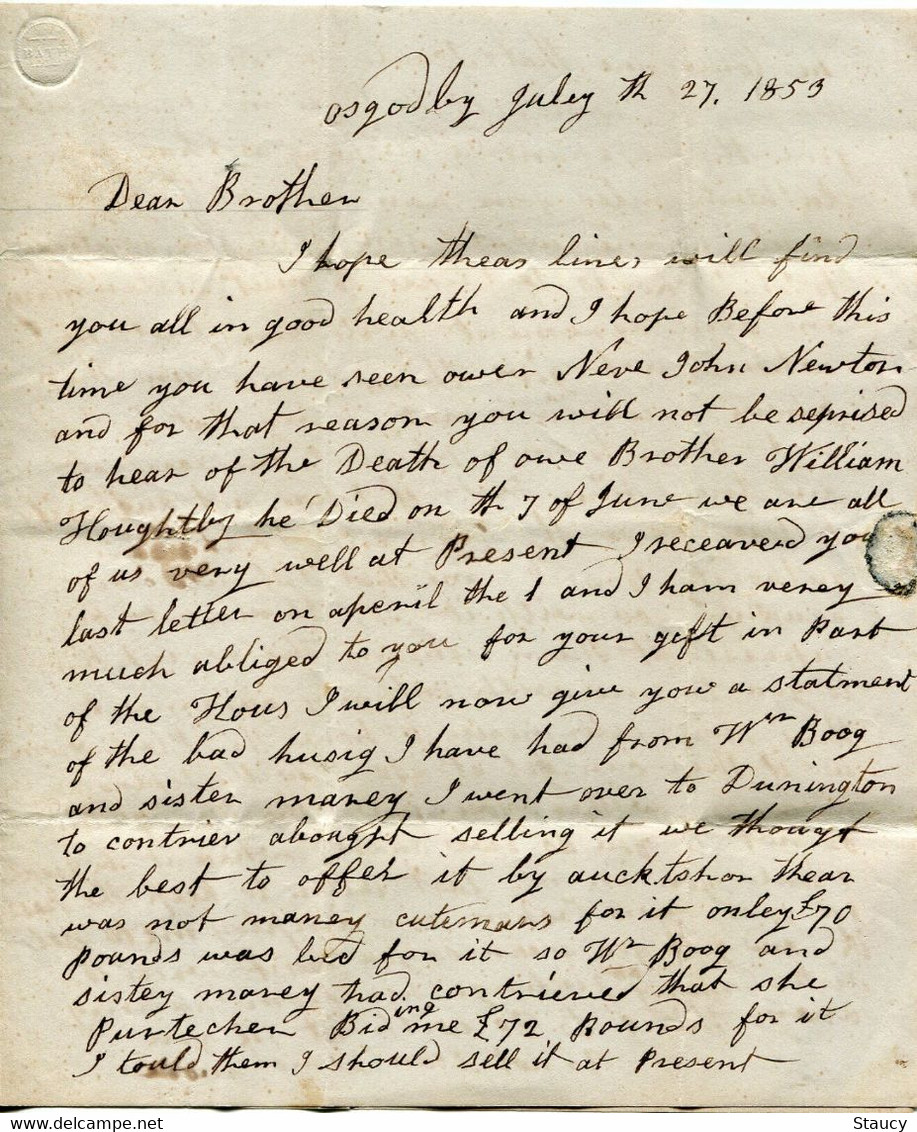 BATH
osgodby Juley th 27. 1853
Dear Brother
I hope theas lines will find
you all in good health and I hope Before this
time you have seen ower Neve John Newton
and for that reason you will not be seprised
to hear of the Death of owe Brother William
Houghtby he Died on th 7 of June we are all
of us very well at Present I receaved you
last letter on aperil the 1 and I ham verey
much abliged to you for your geft in Part
of the Hous I will now give yow a statment
of the bad husig I have had from Wm Boog
and sister marey I went over to Dunington
to contriev abought selling it we thought
the best to offer it by aucktshon thear
was not maney cutemans for it onley £70
pounds was bid for it so Wm Boog and
sistey marey had contrieved that she
Purtechen Biding me £72 Pounds for it
I tould them I should sell it at Present
Staucy